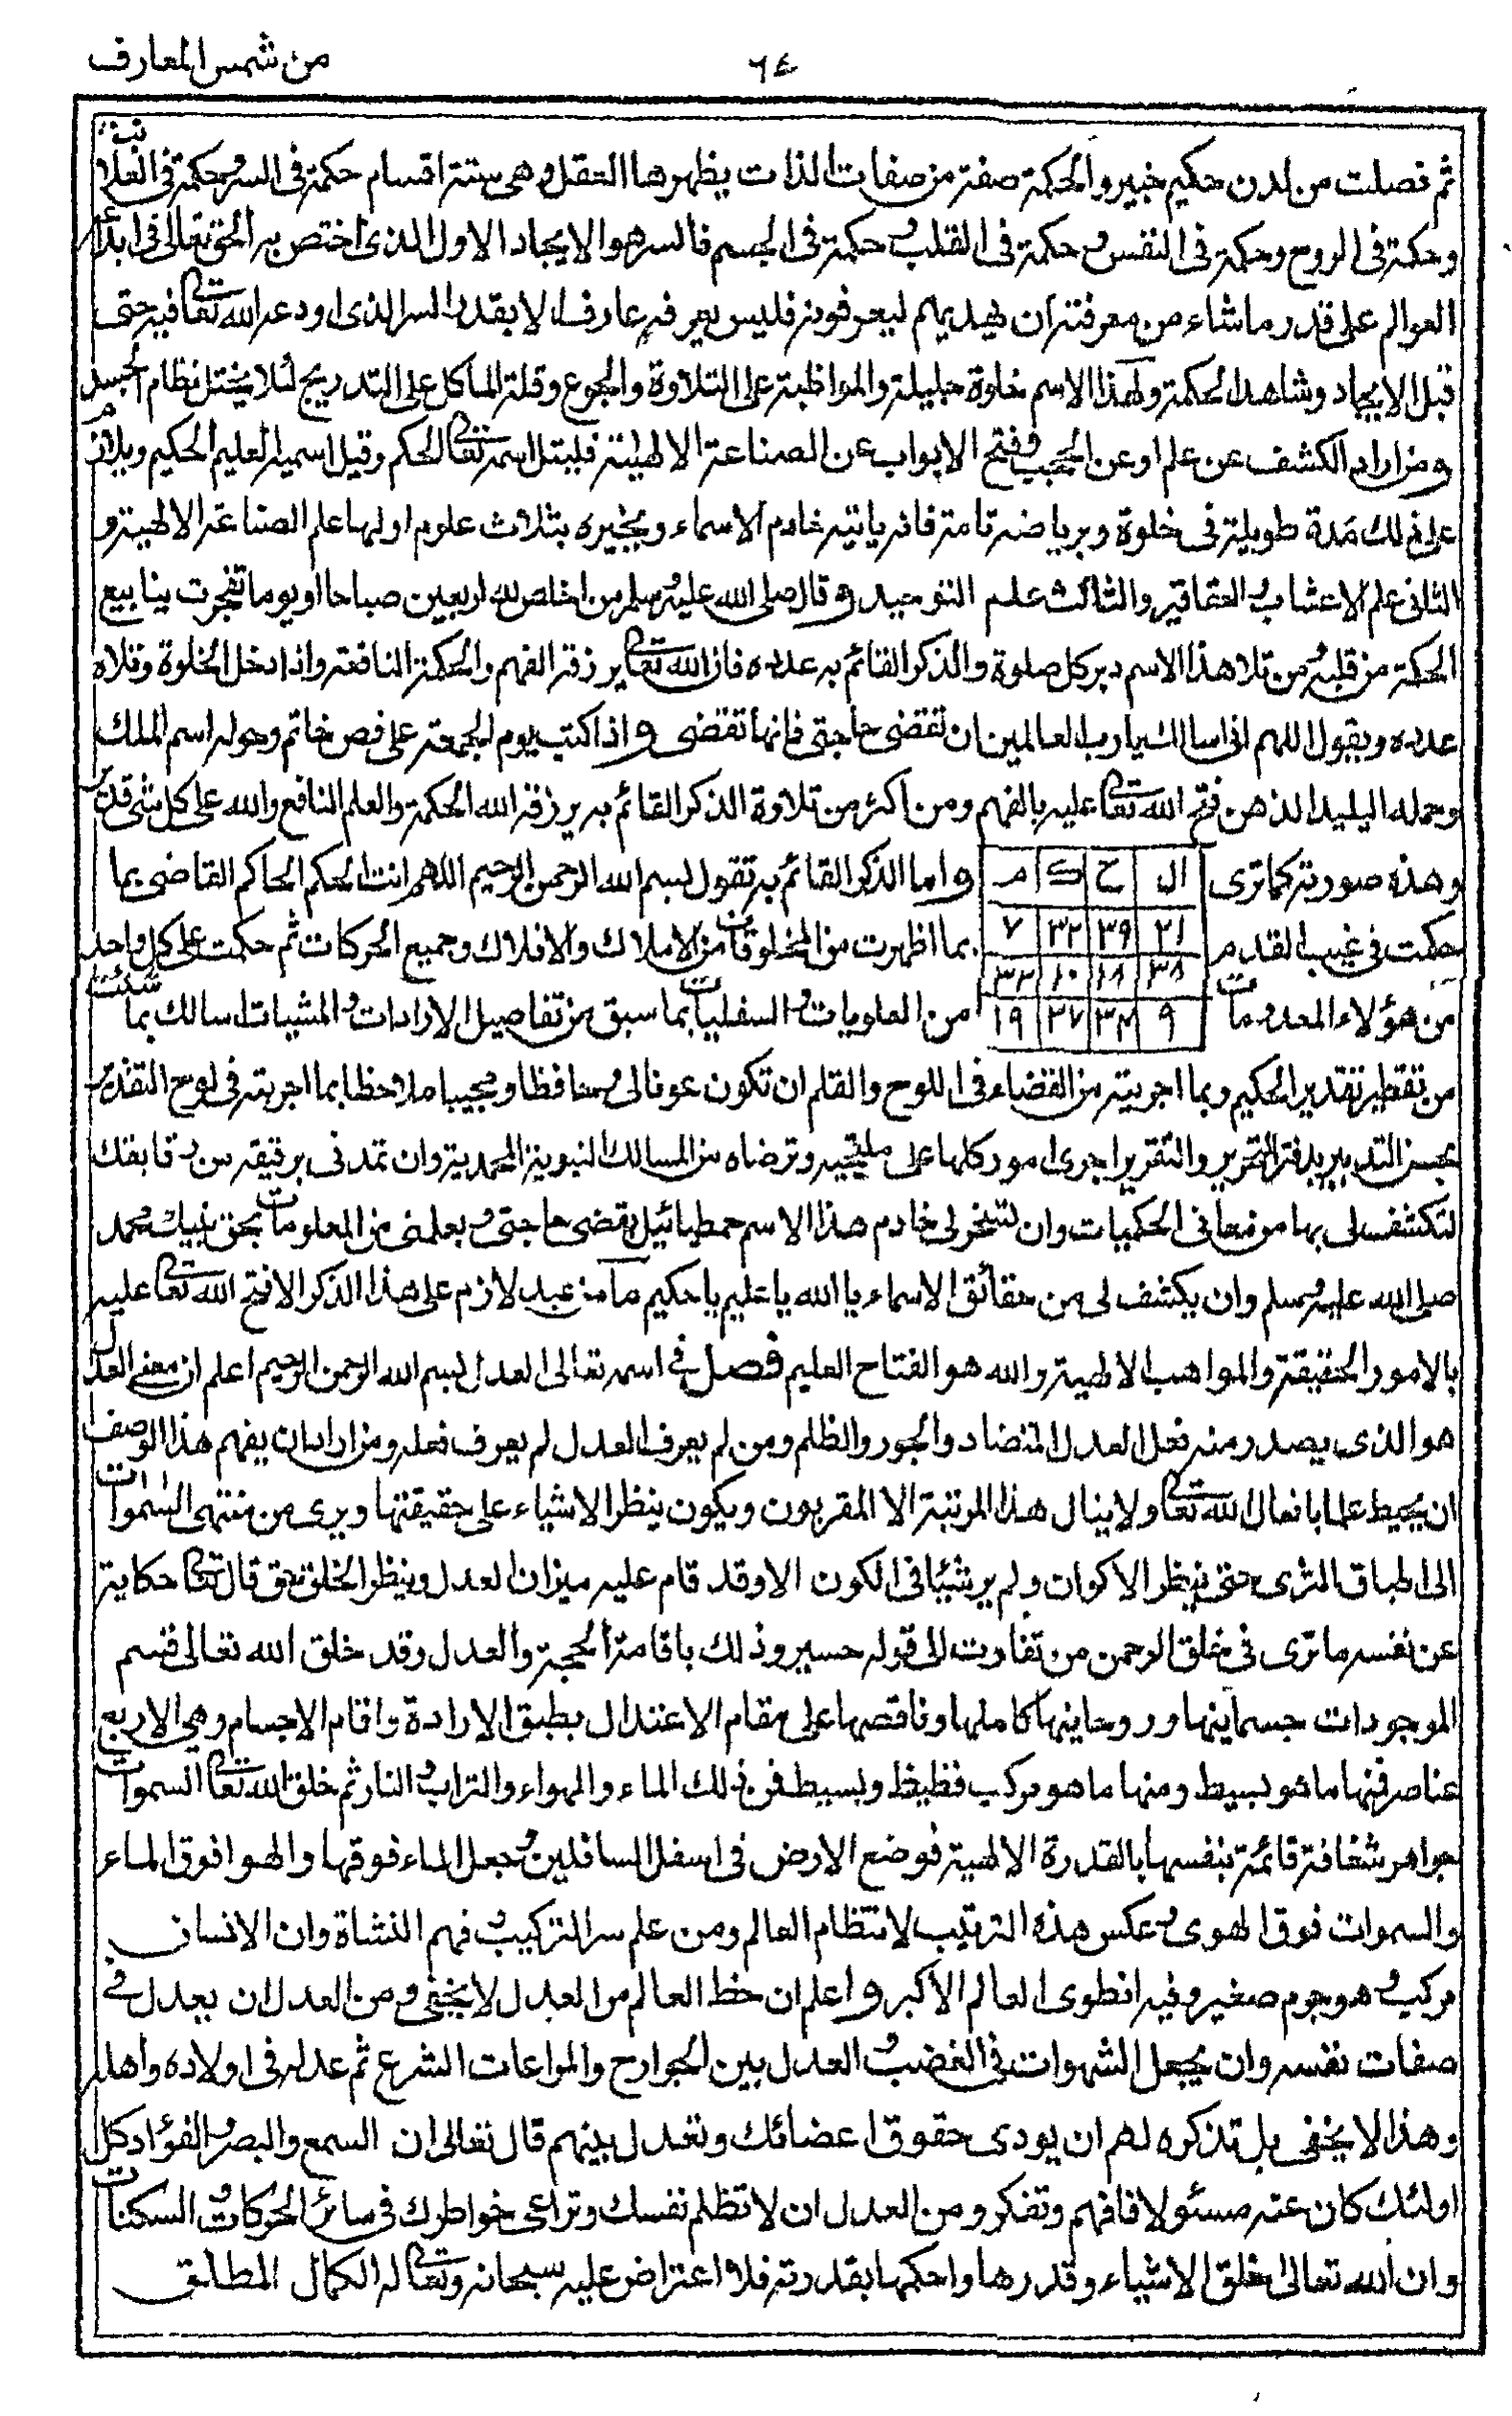 من شمس المعارف
٦٤
ثم فصلت من لدن حكيم خبير والحكمة صفة من صفات الذات يظهرها العقل وهي ستة اقسام حكمة في السر وحكمة في العلانية
وحكمة في الروح وحكمة في النفس وحكمة في القلب وحكمة في الجسم فالسر هو الايجاد الاول الذي اختص به الحق تعالى في ابداء
العوالم على قدر ما شاء من معرفته ان يهديهم ليعرفونه فليس يعرفه عارف الا بقدر السر الذي اودعه الله تعالى فيه حتى
قبل الايجاد وشاهد الحكمة ولهذا الاسم خلوة جليلة والمواظبة على التلاوة والجوع وقلة الماكل على التدريج لئلا يختل نظام الجسد
ومن اراد الكشف عن علم او عن الحجب وفتح الابواب عن الصناعة الالهية فليتل اسمه تعالى الحكم وقيل اسميه العليم الحكيم ويلازم
على ذلك مدة طويلة في خلوة وبرياضة تامة فانه ياتيه خادم الاسماء ويخبره بثلاث علوم اولها علم الصناعة الالهية و
الثاني علم الاعشاب والعقاقير والثالث علم التوحيد وقال صلى الله عليه وسلم من اخلص لله اربعين صباحا او يوما تفجرت ينابيع
الحكمة من قلبه ومن تلا هذا الاسم دبر كل صلوة والذكر القائم به عدده فان الله تعالى يرزقه الفهم والحكمة النافعة واذا دخل الخلوة وتلاه
عدده ويقول اللهم اني اسالك يا رب العالمين ان تقضي حاجتي فانها تقضى واذا كتب يوم الجمعة على فص خاتم وحوله اسم الملك
وحمله البليد الذهن فتح الله تعالى عليه بالفهم ومن اكثر من تلاوة الذكر القائم به يرزقه الله الحكمة والعلم النافع والله على كل شئ قدير
وهذه صورته كما ترى ال ح ك م واما الذكر القائم به تقول بسم الله الرحمن الرحيم اللهم انت الحكم الحاكم القاضي بما
حكمت في غيب القدم ٣١ ٣٩ ٣٢ ٧ بما اظهرت من المخلوقات من الاملاك والافلاك وجميع الحركات ثم حكمت على كل واحد
٣٨ ١٨ ١٠ ٣٣
من هؤلاء المعدومات ٩ ٣٧ ١٩ من العلويات والسفليات بما سبق من تفاصيل الارادات والمشيات اسالك بما شئت
من تقطير تقدير الحكيم وبما اجريته من القضاء في اللوح والقلم ان تكون عونا لي وحافظا ومجيبا ملاحظا بما اجريته في لوح التقدير
بحسن التدبير بدفتر التحرير والتقرير اجري امور كلها على ما تحبه وترضاه من المسالك النبوية المحمدية وان تمدني برقيقة من دقايقك
لتكشف لي بها من معاني الحكميات وان تسخر لي خادم هذا الاسم حمطيائيل يقضي حاجتي ويعلمني من المعلومات بحق نبيك محمد
صلى الله عليه وسلم وان يكشف لي من حقائق الاسماء يا الله يا عليم يا حكيم ما من عبد لازم على هذا الذكر الا فتح الله تعالى عليه
بالامور الحقيقة والمواهب الالهية والله هو الفتاح العليم فصل في اسمه تعالى العدل بسم الله الرحمن الرحيم اعلم ان معنى العدل
هو الذي يصدر منه فعل العدل المتضاد والجور والظلم ومن لم يعرف العدل لم يعرف فعله ومن اراد ان يفهم هذا الوصف
ان يحيط علما بافعال الله تعالى ولا ينال هذا المرتبة الا المقربون ويكون ينظر الاشياء على حقيقتها ويرى من منتهى السموات
الى اطباق الثرى حتى ينظر الاكوان ولم ير شيئا في الكون الا وقد قام عليه ميزان العدل وينظر الخلق بحق قال تعالى حكاية
عن نفسه ما ترى في خلق الرحمن من تفاوت الى قوله حسير وذلك باقامة الحجة والعدل وقد خلق الله تعالى قسم
الموجودات جسماينها وروحاينها كاملها وناقصها على مقام الاعتدال بطبق الارادة واقام الاجسام وهي الاربع
عناصر فمنها ما هو بسيط ومنها ما هو مركب فظيظ وبسيط فمن ذلك الماء والهواء والتراب والنار ثم خلق الله تعالى السموات
جواهر شفافة قائمة بنفسها بالقدرة الالهية فوضع الارض في اسفل السافلين وجعل الماء فوقها والهوا فوق الماء
والسموات فوق الهوى وعكس هذه الترتيب لانتظام العالم ومن علم سر التركيب فهم النشاة وان الانسان
مركب وهو جرم صغير وفيه انطوى العالم الاكبر واعلم ان حظ العالم من العدل لا يخفى ومن العدل ان يعدل في
صفات نفسه وان يجعل الشهوات في الغضب والعدل بين الجوارح والمراعات الشرع ثم عدله في اولاده واهله
وهذا لا يخفى بل تذكره لهم ان يودى حقوق اعضائك وتعدل بينهم قال تعالى ان السمع والبصر والفؤاد كل
اولئك كان عنه مسئولا فافهم وتفكر ومن العدل ان لا تظلم نفسك وتراعى خواطرك في سائر الحركات والسكنات
وان الله تعالى خلق الاشياء وقدرها واحكمها بقدرته فلا اعتراض عليه سبحانه وتعالى له الكمال المطلق